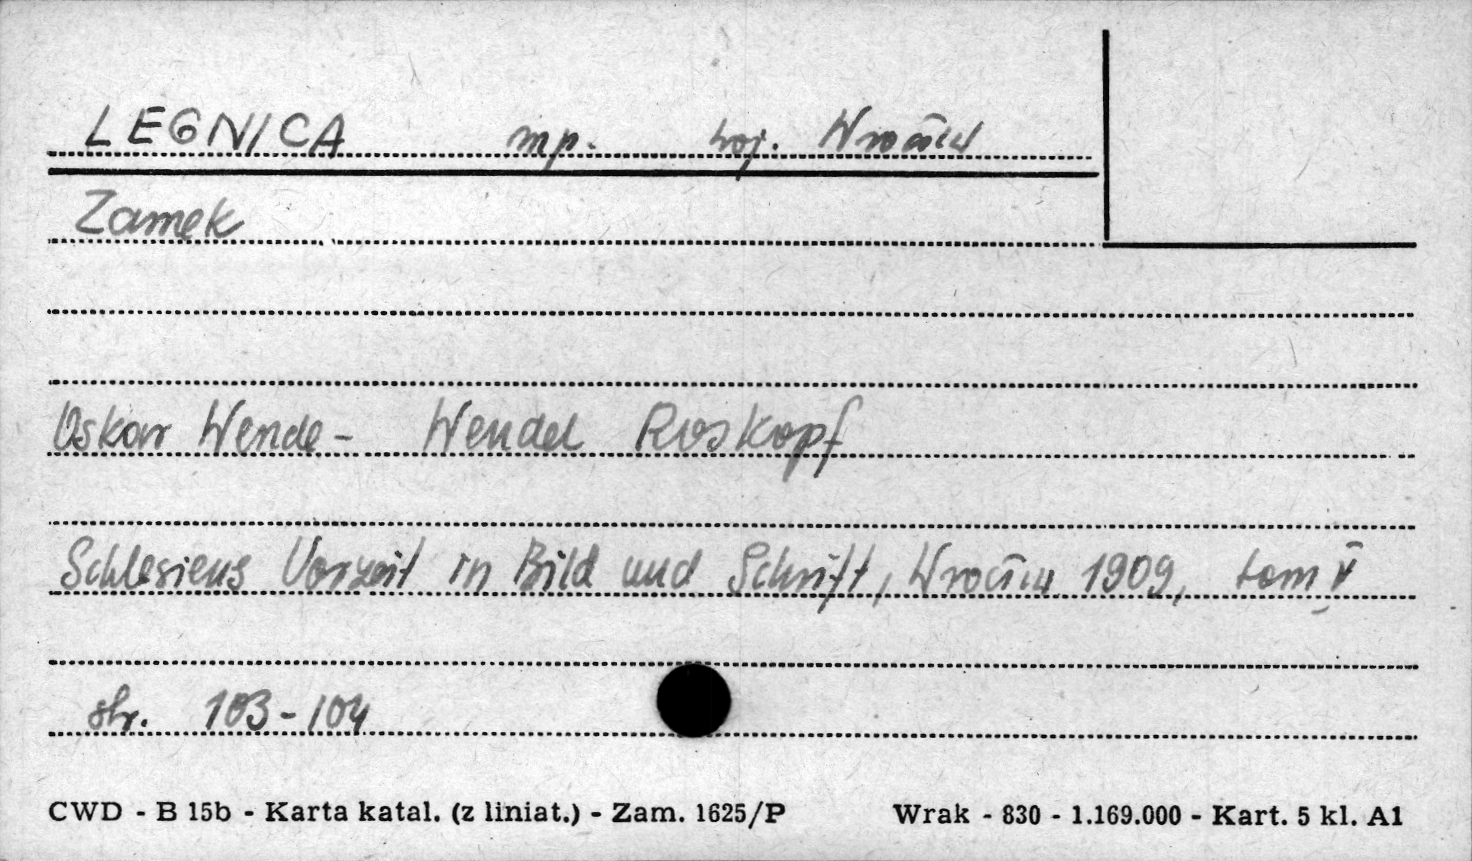 LEGNICA mp. woj. Wrocław
Zamek
Oskar Wende - Wendel Roskopf
Schlesiens Vorzeit in Bild und Schrift, Wrocław 1909, tom V
str. 103-104
CWD - B 15b - Karta katal. (z liniat.) - Zam. 1625/P Wrak - 830 - 1.169.000 - Kart. 5 kl. A1